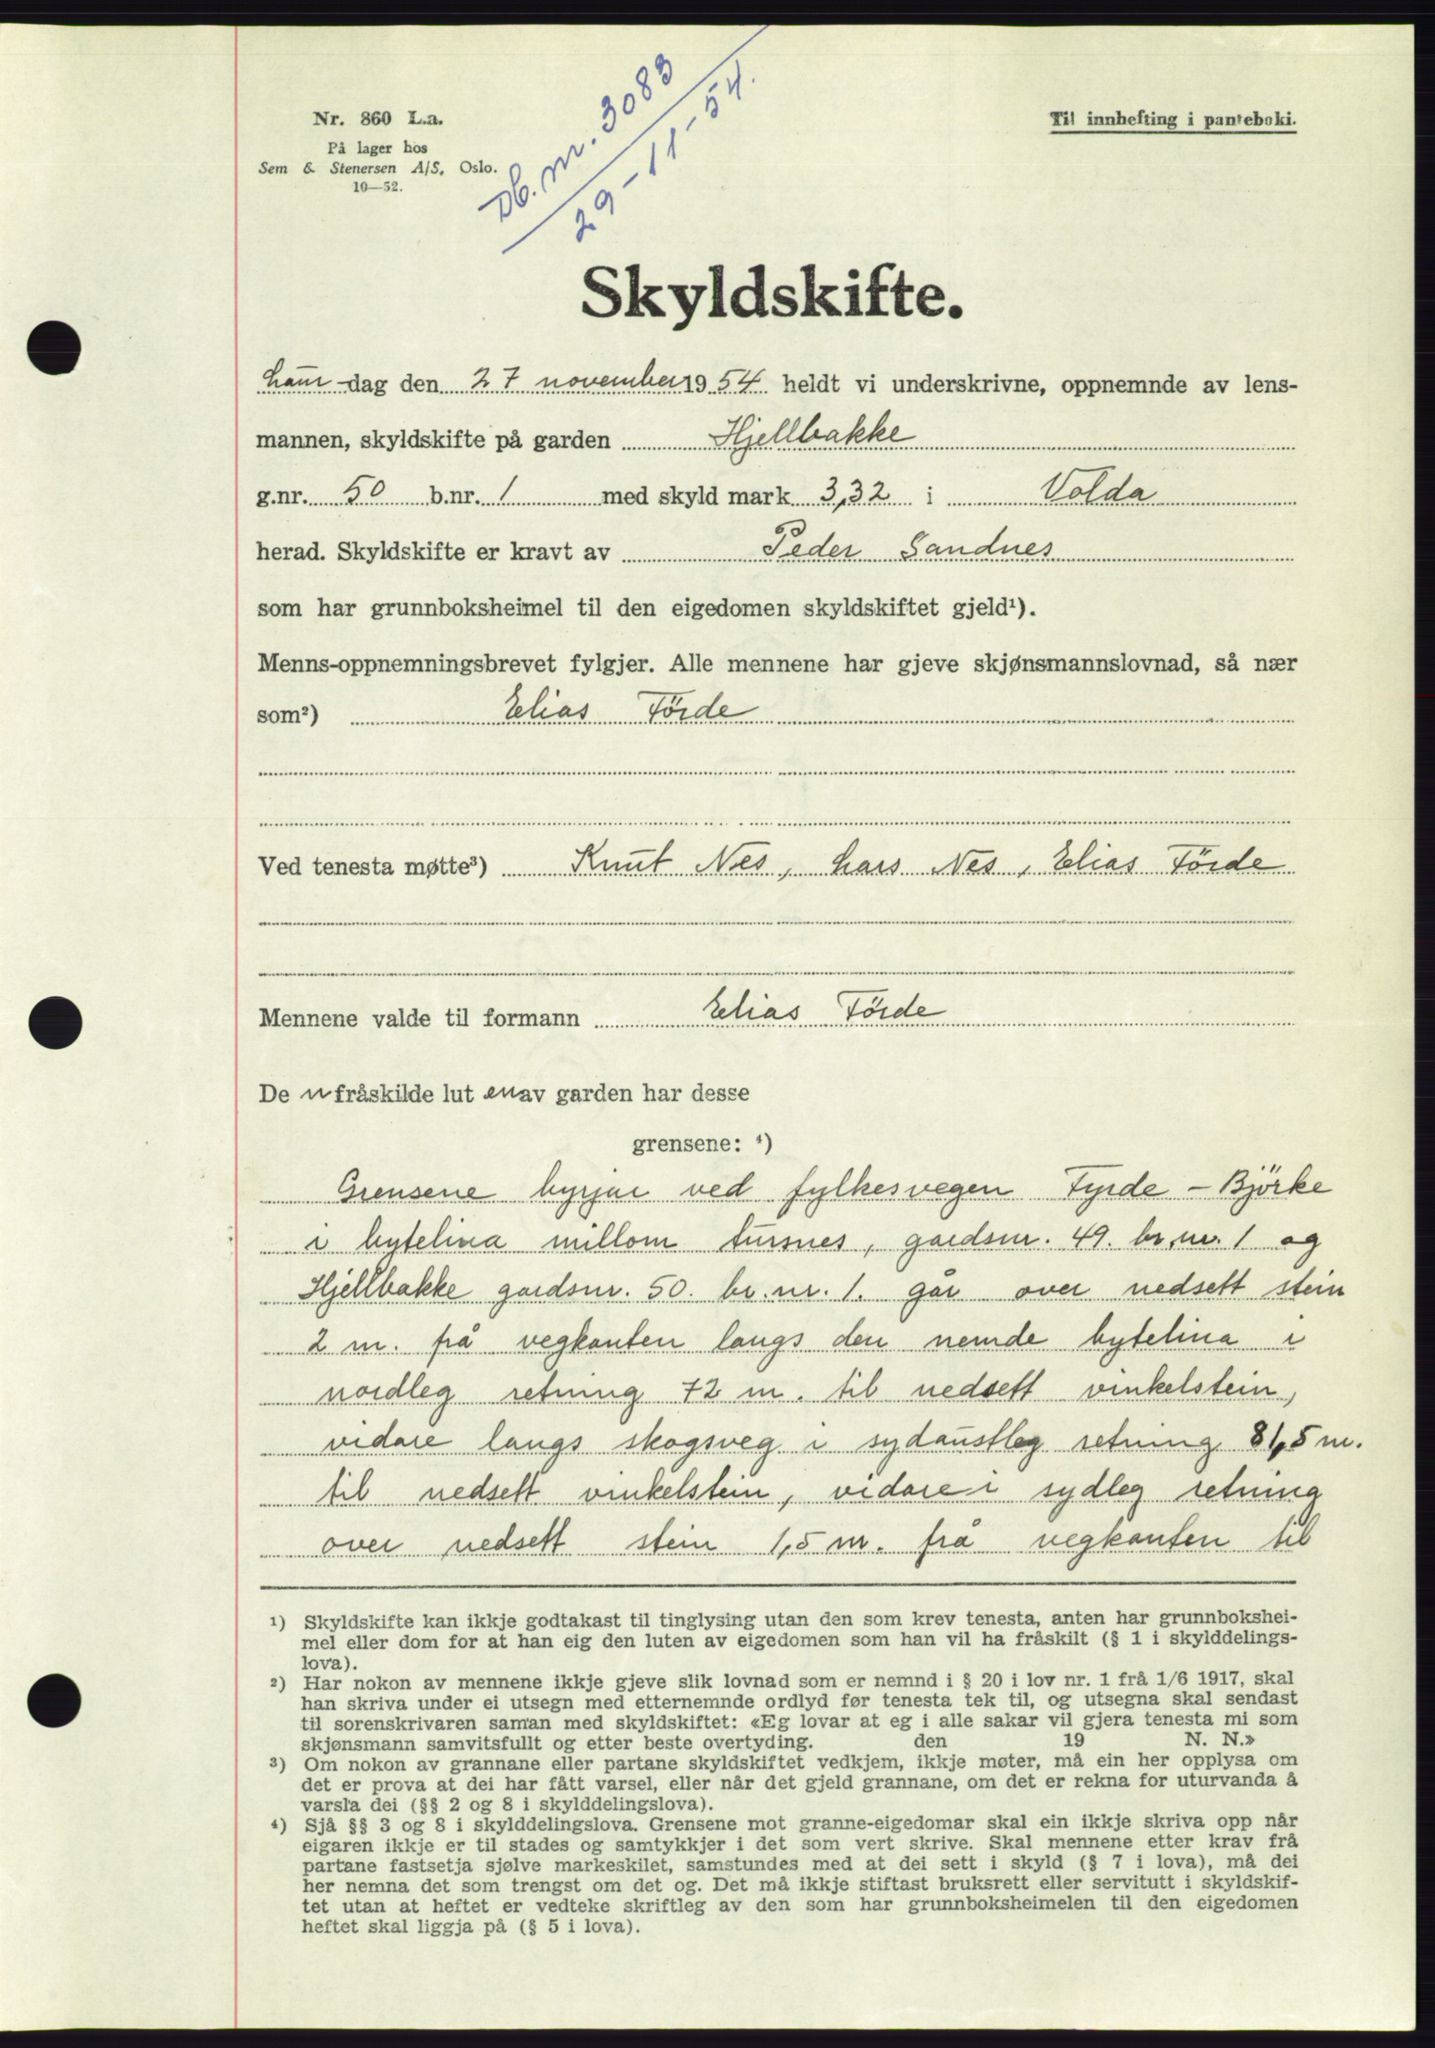 Nr. 860 L.a.
På lager hos
Sem & Stenersen A/S, Oslo.
10—52.
Db. nr. 3083
29-11-54.
Til innhefting i panteboki.
Skyldskifte.
Laur-dag den 27 november 1954 heldt vi underskrivne, oppnemnde av lens-
mannen, skyldskifte på garden Hjellbakke
g.nr. 50 b.nr. 1 med skyld mark 3,32 i Volda
herad. Skyldskifte er kravt av Peder Sandnes
som har grunnboksheimel til den eigedomen skyldskiftet gjeld¹).
Menns-oppnemningsbrevet fylgjer. Alle mennene har gjeve skjønsmannslovnad, så nær
som²) Elias Förde
Ved tenesta møtte³) Knut Nes, Lars Nes, Elias Förde
Mennene valde til formann Elias Förde
De n fråskilde lut en av garden har desse
grensene: ⁴)
Grensene byrjar ved fylkesvegen Fyrde - Björke
i bytelina millom Fursnes, gardsnr. 49. br.nr. 1 og
Hjellbakke gardsnr. 50. br.nr. 1. går over nedsett stein
2 m. frå vegkanten langs den nemde bytelina i
nordleg retning 72 m. til nedsett vinkelstein,
vidare langs skogsveg i sydaustleg retning 81,5 m.
til nedsett vinkelstein, vidare i sydleg retning
over nedsett stein 1,5 m. frå vegkanten til
¹) Skyldskifte kan ikkje godtakast til tinglysing utan den som krev tenesta, anten har grunnbokshei-
mel eller dom for at han eig den luten av eigedomen som han vil ha fråskilt (§ 1 i skylddelings-
lova).
²) Har nokon av mennene ikkje gjeve slik lovnad som er nemnd i § 20 i lov nr. 1 frå 1/6 1917, skal
han skriva under ei utsegn med etternemnde ordlyd før tenesta tek til, og utsegna skal sendast
til sorenskrivaren saman med skyldskiftet: «Eg lovar at eg i alle sakar vil gjera tenesta mi som
skjønsmann samvitsfullt og etter beste overtyding. den 19 N. N.»
³) Om nokon av grannane eller partane skyldskiftet vedkjem, ikkje møter, må ein her opplysa om
det er prova at dei har fått varsel, eller når det gjeld grannane, om det er rekna for uturvanda å
varsla dei (§§ 2 og 8 i skylddelingslova).
⁴) Sjå §§ 3 og 8 i skylddelingslova. Grensene mot granne-eigedomar skal ein ikkje skriva opp når
eigaren ikkje er til stades og samtykkjer i det som vert skrive. Skal mennene etter krav frå
partane fastsetja sjølve markeskilet, samstundes med at dei sett i skyld (§ 7 i lova), må dei
her nemna det som trengst om det og. Det må ikkje stiftast bruksrett eller servitutt i skyldskif-
tet utan at heftet er vedteke skriftleg av den som har grunnboksheimelen til den eigedomen
heftet skal liggja på (§ 5 i lova).